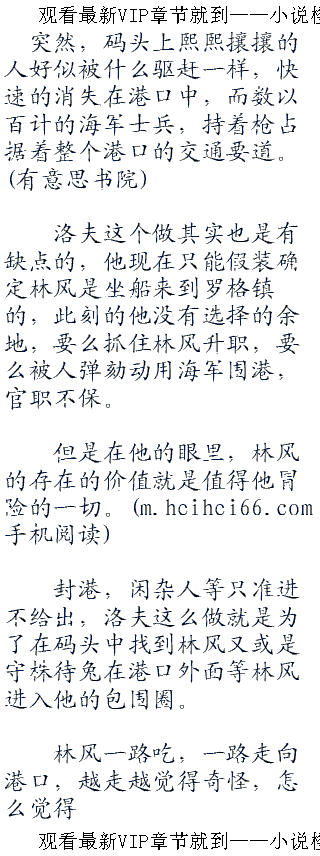 观看最新VIP章节就到——小说
突然，码头上熙熙攘攘的
人好似被什么驱赶一样，快
速的消失在港口中，而数以
百计的海军士兵，持着枪占
据着整个港口的交通要道。
(有意思书院)
洛夫这个做其实也是有
缺点的，他现在只能假装确
定林风是坐船来到罗格镇
的，此刻的他没有选择的余
地，要么抓住林风升职，要
么被人弹劾动用海军围港，
官职不保。
但是在他的眼里，林风
的存在的价值就是值得他冒
险的一切。(m.hcihci66.com
手机阅读)
封港，闲杂人等只准进
不给出，洛夫这么做就是为
了在码头中找到林风又或是
守株待兔在港口外面等林风
进入他的包围圈。
林风一路吃，一路走向
港口，越走越觉得奇怪，怎
么觉得
观看最新VIP章节就到——小说